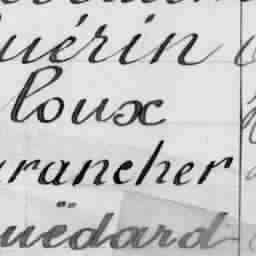 uérin
loux
rancher
uëdard